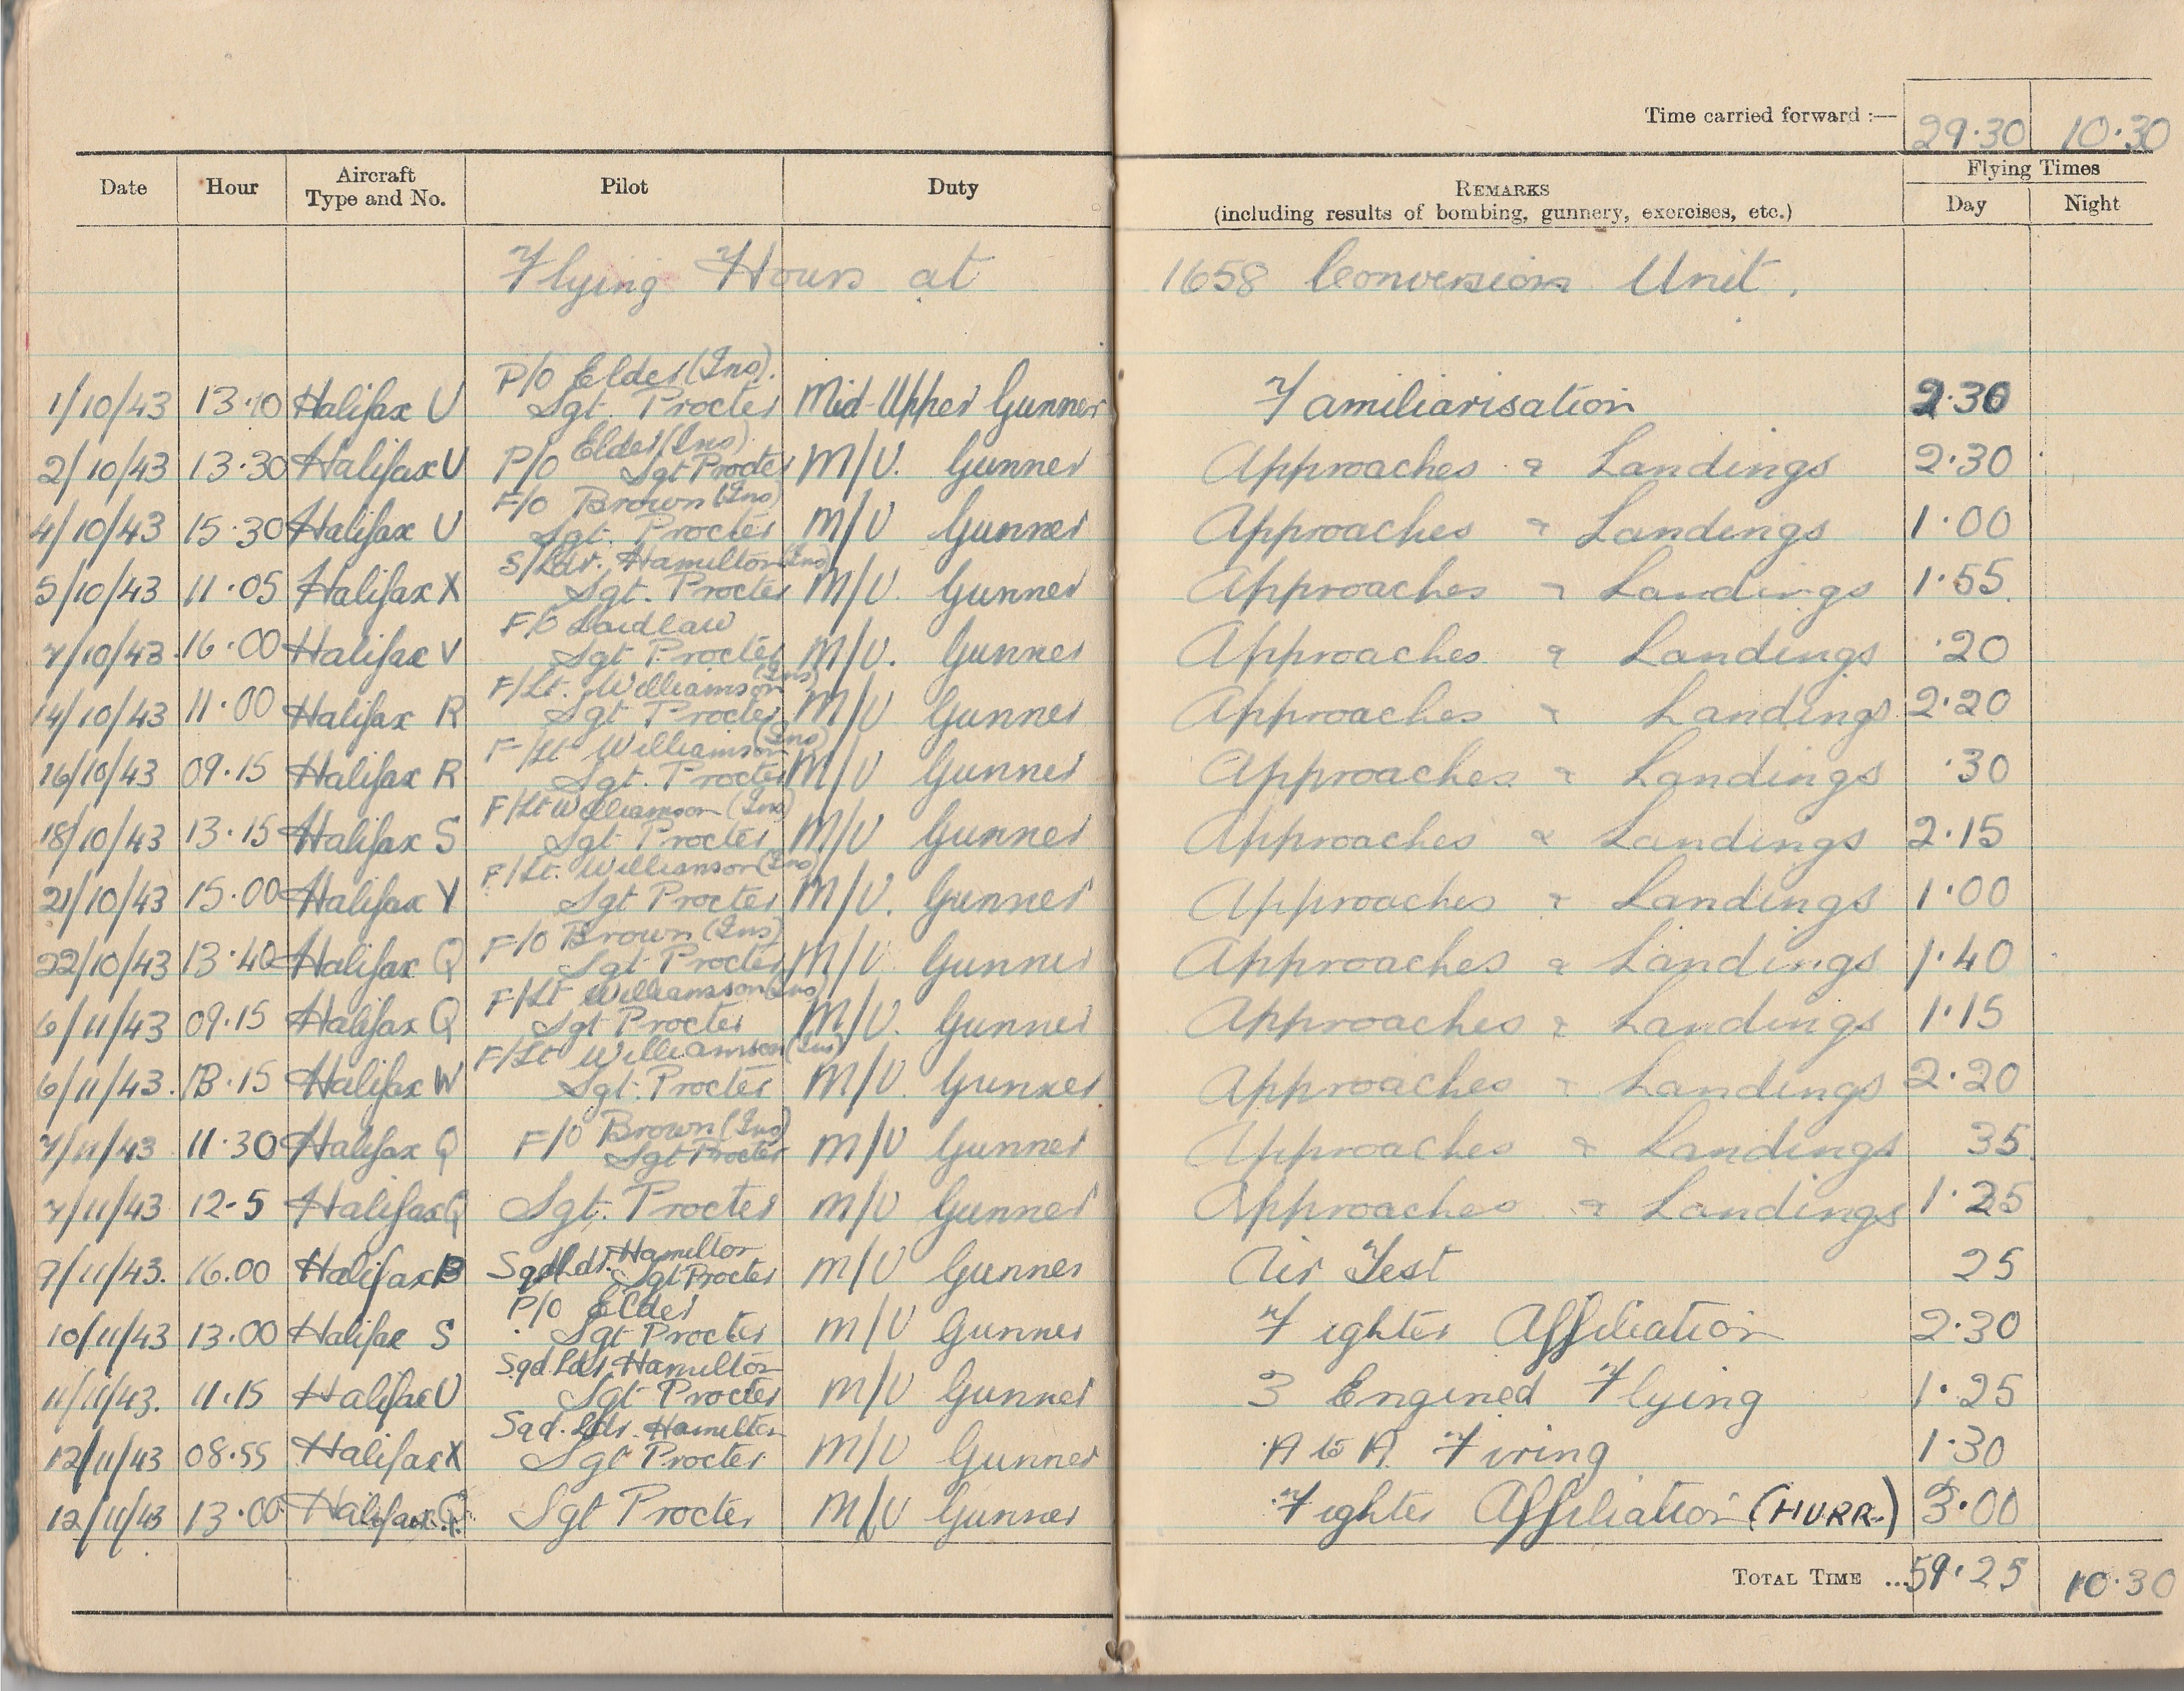 Time carried forward :— 29·30 10·30
Date Hour Aircraft Type and No. Pilot Duty REMARKS (including results of bombing, gunnery, exercises, etc.) Flying Times Day Night
Flying Hours at 1658 Conversion Unit.
P/O Elder (Ins).
1/10/43 13·10 Halifax U Sgt. Procter Mid-Upper Gunner Familiarisation 2·30
Elder (Ins)
2/10/43 13·30 Halifax U P/O Sgt Procter M/U. Gunner Approaches & Landings 2·30
F/O Brown (Ins)
4/10/43 15·30 Halifax U Sgt. Procter M/U Gunner Approaches & Landings 1·00
S/Ldr. Hamilton (Ins)
5/10/43 11·05 Halifax X Sgt. Procter M/U. Gunner Approaches & Landings 1·55
F/O Laidlaw
7/10/43 16·00 Halifax V Sgt Procter M/U. Gunner Approaches & Landings ·20
F/Lt. Williamson (Ins)
14/10/43 11·00 Halifax R Sgt Procter M/U Gunner Approaches & Landings 2·20
F/Lt Williamson (Ins)
16/10/43 09·15 Halifax R Sgt. Procter M/U Gunner Approaches & Landings ·30
F/Lt Williamson (Ins)
18/10/43 13·15 Halifax S Sgt Procter M/U Gunner Approaches & Landings 2·15
F/Lt. Williamson (Ins)
21/10/43 15·00 Halifax Y Sgt Procter M/U. Gunner Approaches & Landings 1·00
F/O Brown (Ins)
22/10/43 13·40 Halifax Q Sgt Procter M/U Gunner Approaches & Landings 1·40
F/Lt Williamson (Ins)
6/11/43 09·15 Halifax Q Sgt Procter M/U. Gunner Approaches & Landings 1·15
F/Lt Williamson (Ins)
6/11/43. 13·15 Halifax W Sgt. Procter M/U. Gunner Approaches & Landings 2·20
F/O Brown (Ins)
7/11/43 11·30 Halifax Q Sgt Procter M/U Gunner Approaches & Landings 35
7/11/43 12-5 Halifax Q Sgt. Procter M/U Gunner Approaches & Landings 1·25
Sqd Ldr. Hamilton
7/11/43. 16.00 Halifax B Sgt Procter M/U Gunner Air Test 25
P/O Elder
10/11/43 13·00 Halifax S Sgt Procter M/U Gunner Fighter Affiliation 2·30
Sqd. Ldr. Hamilton
11/11/43. 11·15 Halifax U Sgt Procter M/U Gunner 3 Engined Flying 1·25
Sqd. Ldr. Hamilton
12/11/43 08·55 Halifax X Sgt Procter M/U Gunner A to A. Firing 1·30
12/11/43 13·00 Halifax Q Sgt Procter M/U Gunner Fighter Affiliation (HURR.) 3·00
TOTAL TIME ... 59·25 10·30